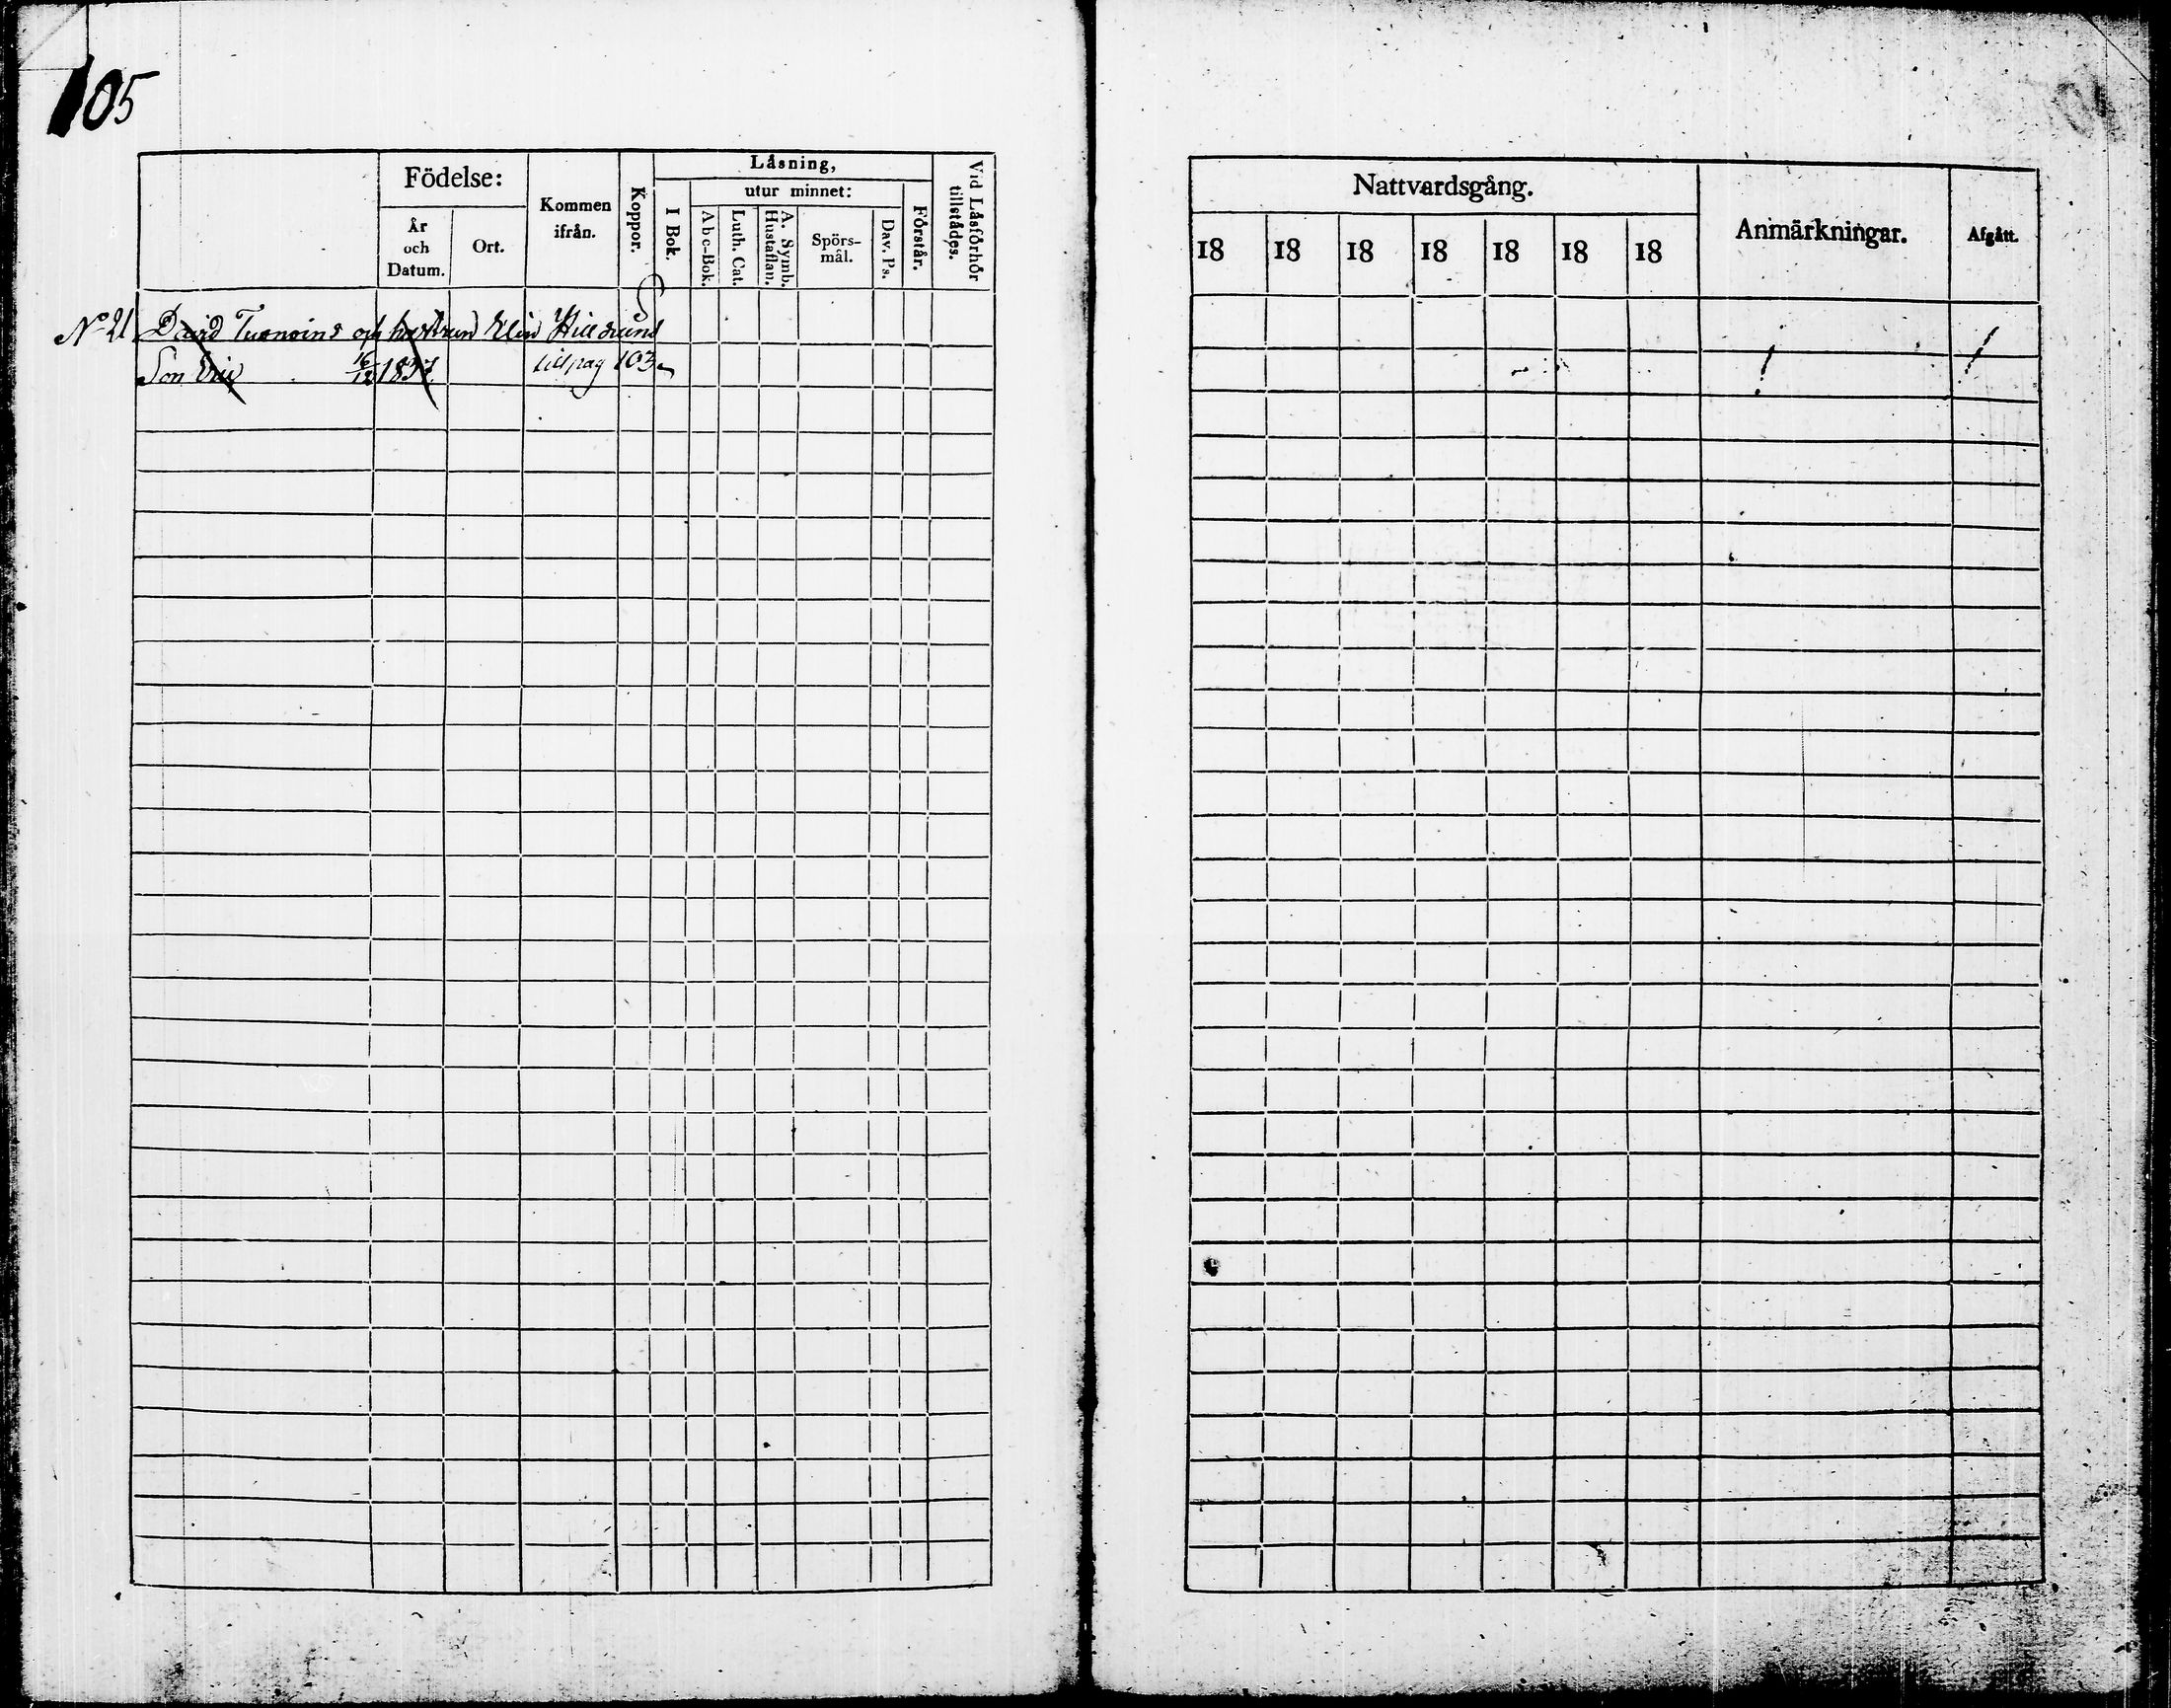 105
Födelse:
År och Datum.
Ort.
Kommen ifrån.
Koppor.
Låsning,
I Bok.
utur minnet:
A b c-Bok.
Luth. Cat.
A. Symb. Hustaflan.
Spörs-
mål.
Dav. Ps.
Förstår.
Vid Låsförhör tillstådes.
No 21 David och hustrun Elin
Son Eric 16/12 1837 till pag 103
Nattvardsgång.
18 18 18 18 18 18 18
Anmärkningar.
Afgått.